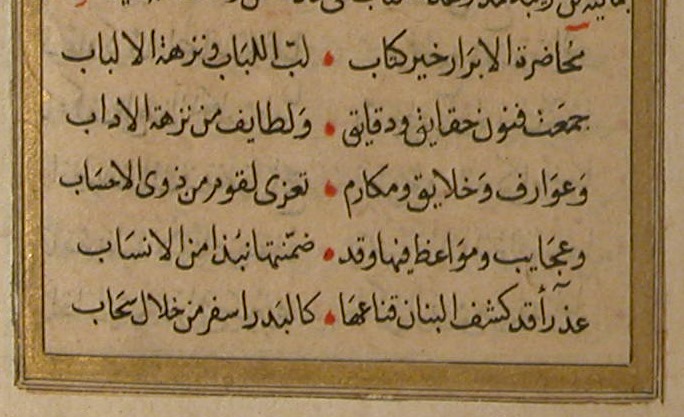 محاضرة الابرار خير كتاب • لبّ اللباب ونزهة الالباب
جمعت فنون حقايق ودقايق • ولطايف من نزهة الاداب
وعوارف وخلايق ومكارم • تعزى لقوم من ذوى الاحساب
وعجايب ومواعظ فيها وقد • ضمّنتها نبذا من الانساب
عذرآء قد كشف البنان قناعها • كالبدر اسفر من خلال سحاب